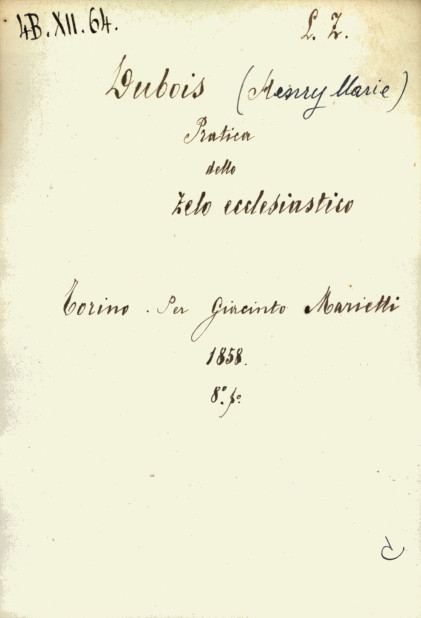 4B.XII.64.
L. Z.
Dubois (Henry Marie)
Pratica
dello
Zelo ecclesiastico
Torino. Per Giacinto Marietti
1858.
8.º f.º